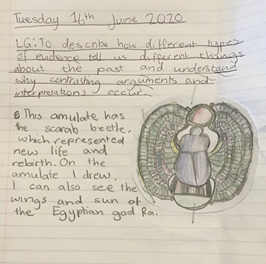 Tuesday 16th June 2020
LG: To describe how different types
of evidence tell us different things
about the past and understand
why contrasting arguments and
interpretations occur.
This amulate has
the scarab beetle,
which represented
new life and
rebirth. On the
amulate I drew,
I can also see the
wings and sun of
the Egyptian god Ra.